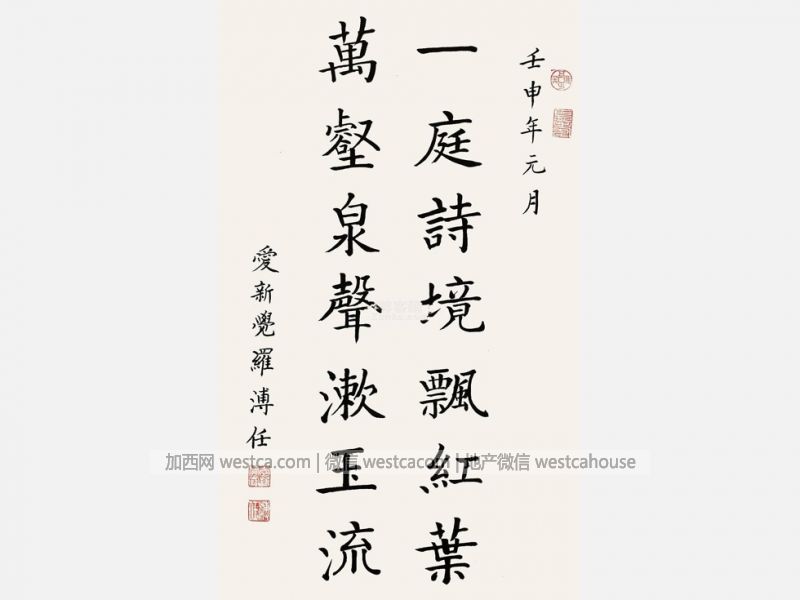 壬申年元月
一庭詩境飄紅葉
萬壑泉聲漱玉流
愛新覺羅溥任
加西网 westca.com | 微信 westcacom | 地产微信 westcahouse